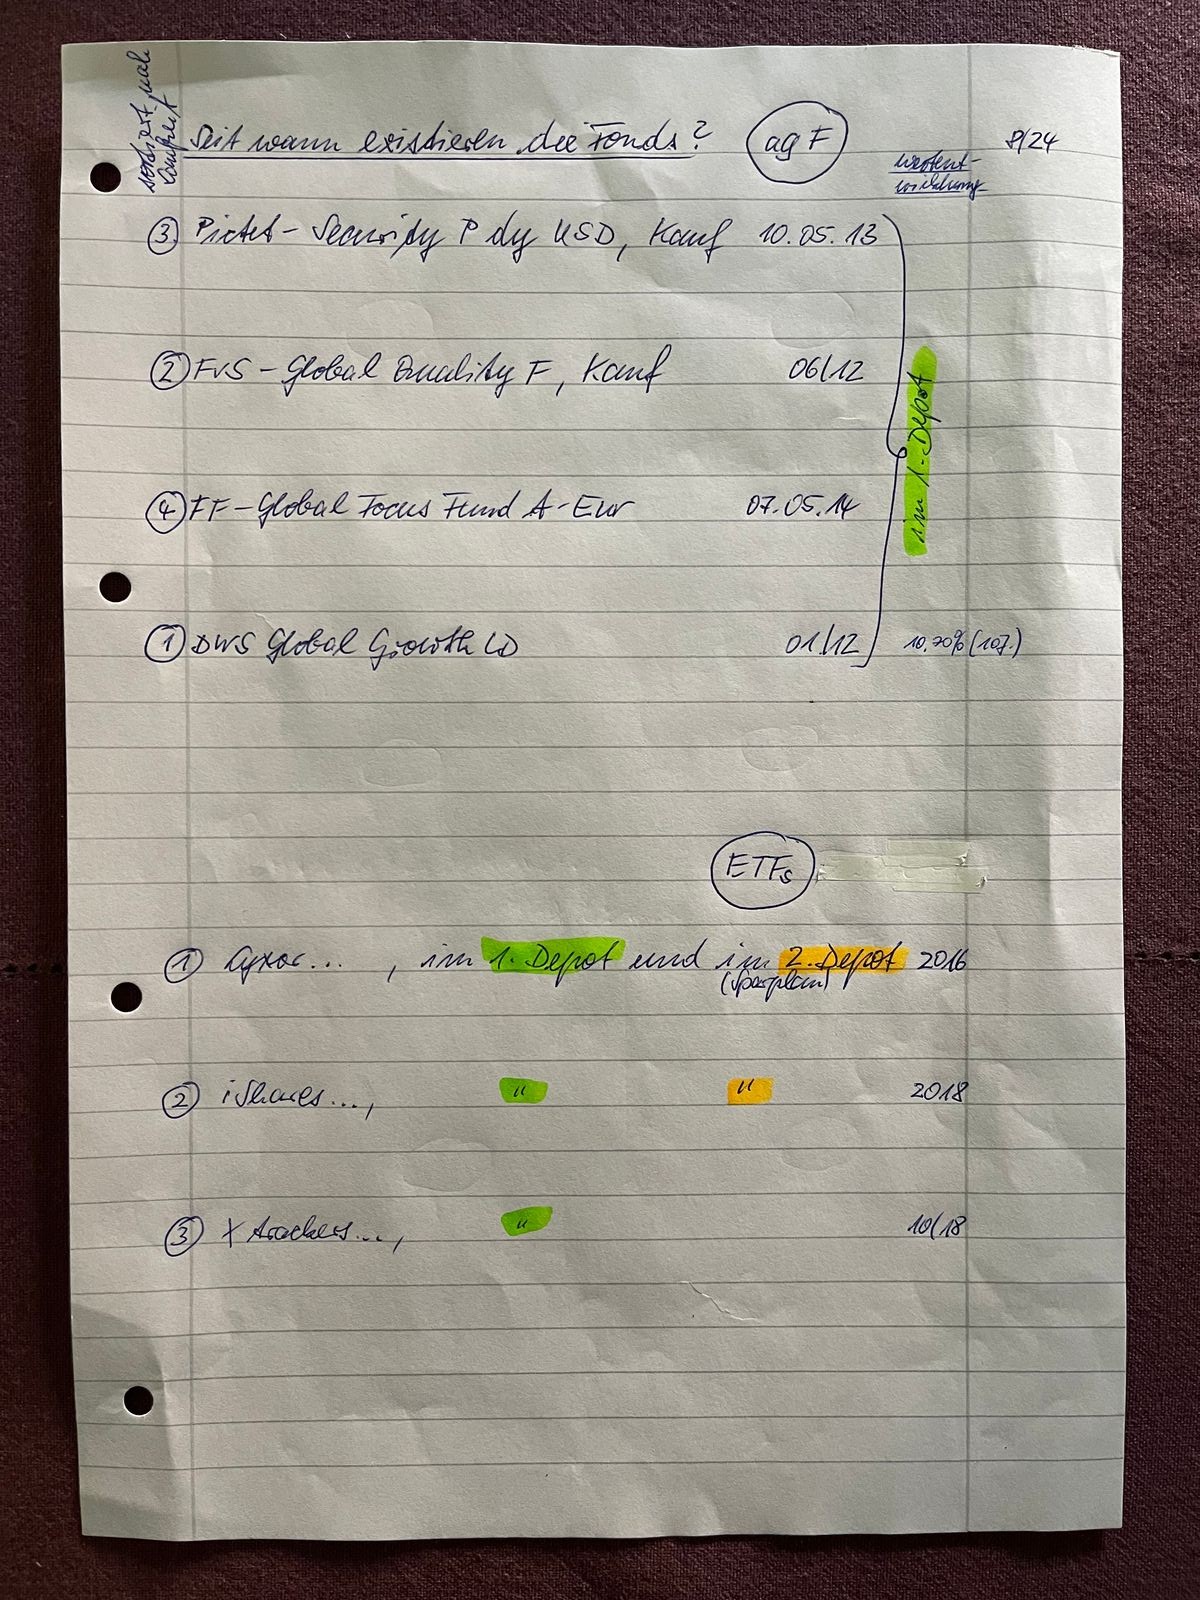 sortiert nach
Laufzeit
Seit wann existieren die Fonds?
ag F
8/24
Wertent-
wicklung
③ Pictet - Security P dy USD, Kauf 10.05.13
② FvS - Global Quality F, Kauf 06/12
④ FF - Global Focus Fund A-Eur 07.05.14
im 1. Depot
① DWS Global Growth LD 01/12 10,70% (10J.)
ETFs
① Lyxor..., im 1. Depot und im 2. Depot 2016
(Sparplan)
② iShares..., " " 2018
③ Xtrackers..., " 10/18